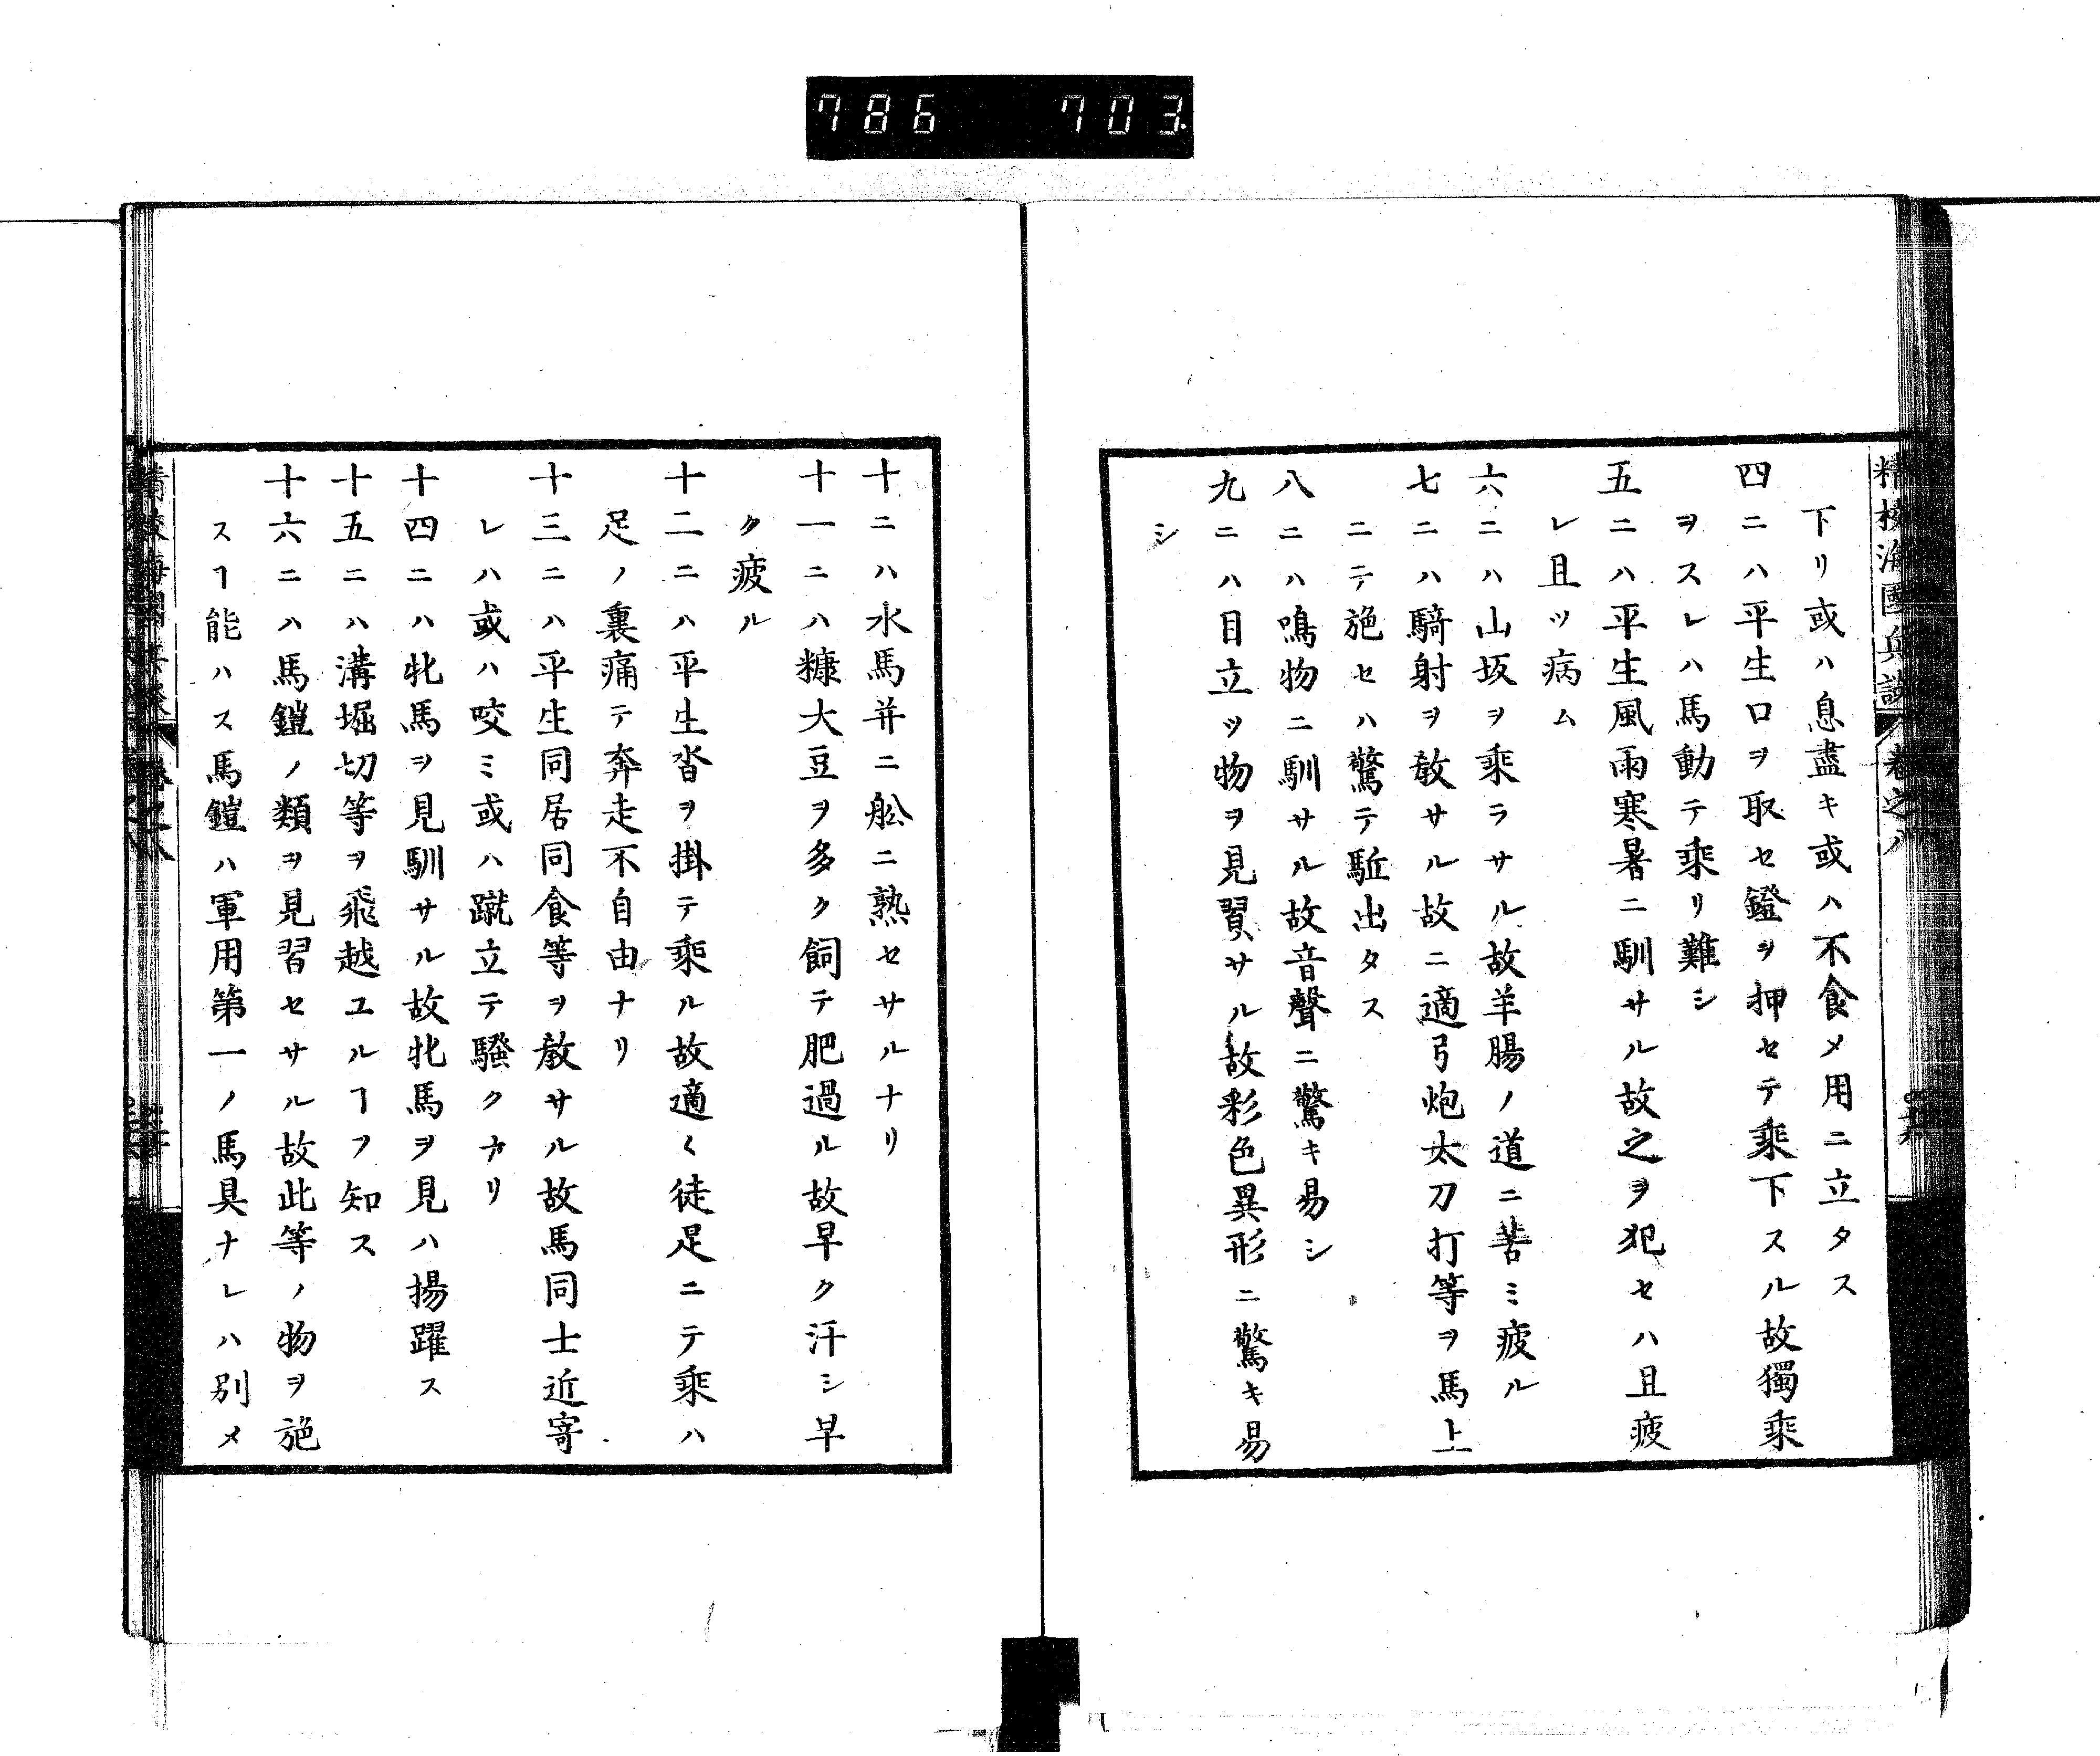 786 703
精校海國兵談 卷之八
下リ或ハ息盡キ或ハ不食メ用ニ立タス
四ニハ平生口ヲ取セ鐙ヲ押セテ乘下スル故獨乘
ヲスレハ馬動テ乘リ難シ
五ニハ平生風雨寒暑ニ馴サル故之ヲ犯セハ且疲
レ且ツ病ム
六ニハ山坂ヲ乘ラサル故羊腸ノ道ニ苦ミ疲ル
七ニハ騎射ヲ敎サル故ニ適弓炮太刀打等ヲ馬上
ニテ施セハ驚テ駈出タス
八ニハ鳴物ニ馴サル故音聲ニ驚キ易シ
九ニハ目立ツ物ヲ見習サル故彩色異形ニ驚キ易
シ
十ニハ水馬幷ニ舩ニ熟セサルナリ
十一ニハ糠大豆ヲ多ク飼テ肥過ル故早ク汗シ早
ク疲ル
十二ニハ平生沓ヲ掛テ乘ル故適く徒足ニテ乘ハ
足ノ裏痛テ奔走不自由ナリ
十三ニハ平生同居同食等ヲ敎サル故馬同士近寄
レハ或ハ咬ミ或ハ蹴立テ騷クナリ
十四ニハ牝馬ヲ見馴サル故牝馬ヲ見ハ揚躍ス
十五ニハ溝堀切等ヲ飛越ユルヿヲ知ス
十六ニハ馬鎧ノ類ヲ見習セサル故此等ノ物ヲ施
スヿ能ハス馬鎧ハ軍用第一ノ馬具ナレハ別メ